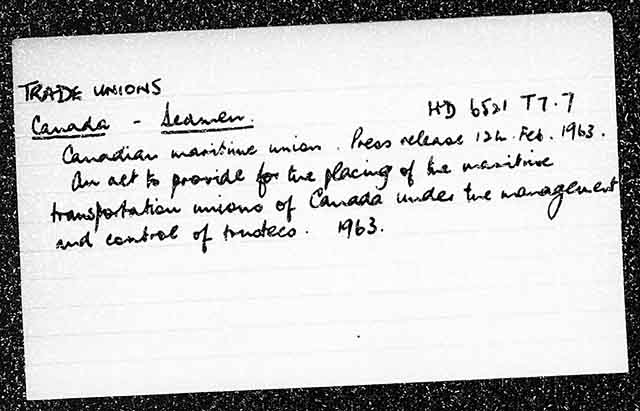 TRADE UNIONS
Canada - Seamen. HD 6521 T7.7
Canadian maritime union. Press release 12th. Feb. 1963.
An act to provide for the placing of the maritime
transportation unions of Canada under the management
and control of trustees. 1963.